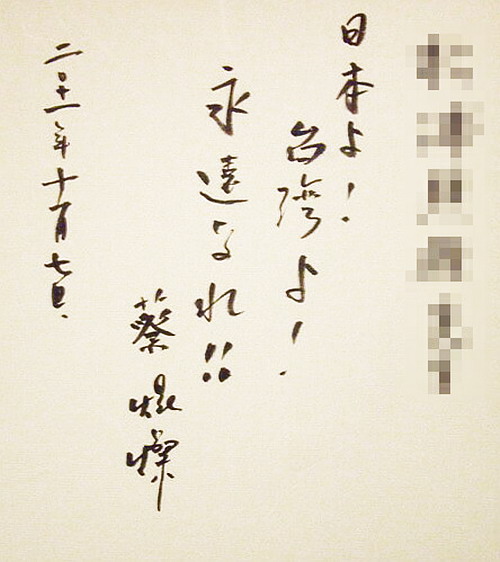 日本よ!
台湾よ!
永遠なれ!!
蔡焜燦
二〇十一年十一月七日